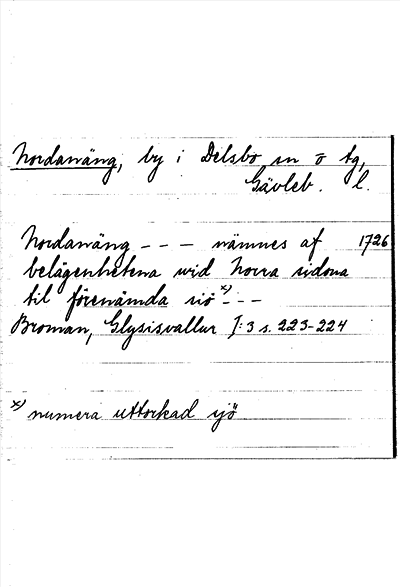 Nordanäng, by i Delsbo sn o tg,
Gävleb. l.
Nordanäng - - - nämnes af 1726
belägenhetena wid Norra sidona
til förenämda siö x) - -
Broman, Glysisvallur I:3 s. 223-224
x) numera uttorkad sjö